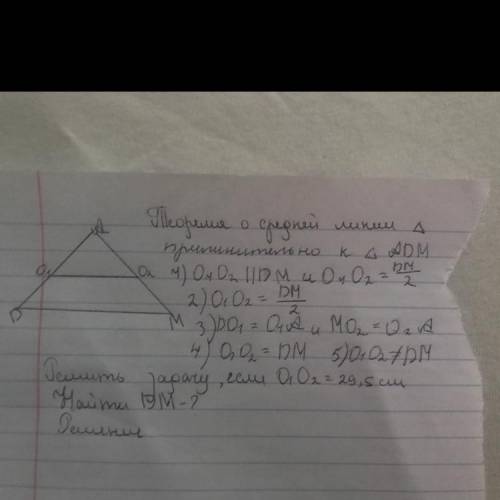 A
Теорема о средней линии Δ
применительно к Δ ADM
O₁ O₂ 1) O₁O₂ || DM и O₁O₂ = DM/2
2) O₁O₂ = DM/2
D M 3) DO₁ = O₁A и MO₂ = O₂A
4) O₁O₂ = DM 5) O₁O₂ ≠ DM
Решить задачу, если O₁O₂ = 29,5 см
Найти DM - ?
Решение